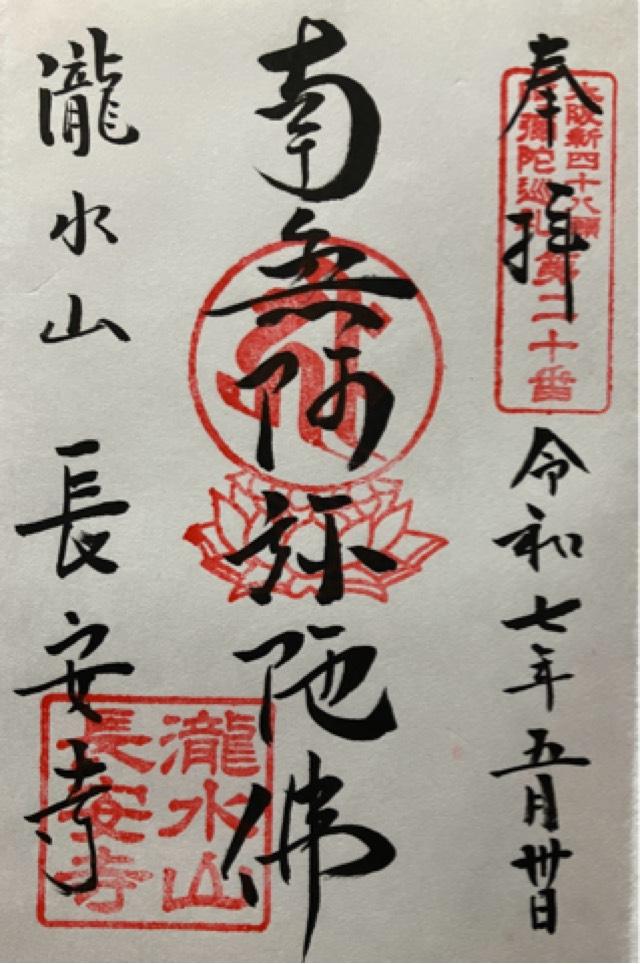 奉拝
大阪新四十八願
阿彌陀巡礼第二十番
令和七年五月卅日
南無阿弥陀佛
瀧水山 長安寺
瀧水山
長安寺